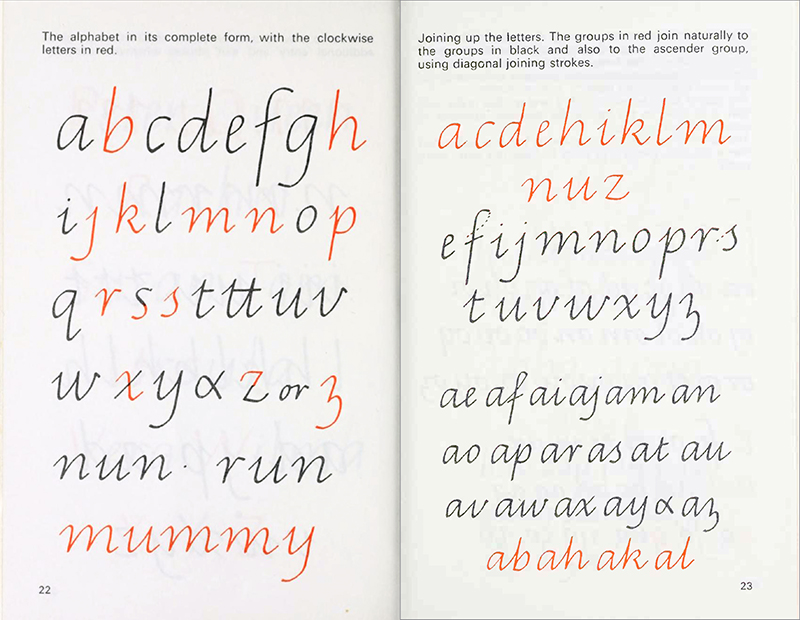 The alphabet in its complete form, with the clockwise
letters in red.
a b c d e f g h
i j k l m n o p
q r s s t tt u v
w x y x z or z
nun run
mummy
22
Joining up the letters. The groups in red join naturally to
the groups in black and also to the ascender group,
using diagonal joining strokes.
a c d e h i k l m
n u z
e f i j m n o p r s
t u v w x y z
ae af ai aj am an
ao ap ar as at au
av aw ax ay x az
ab ah ak al
23